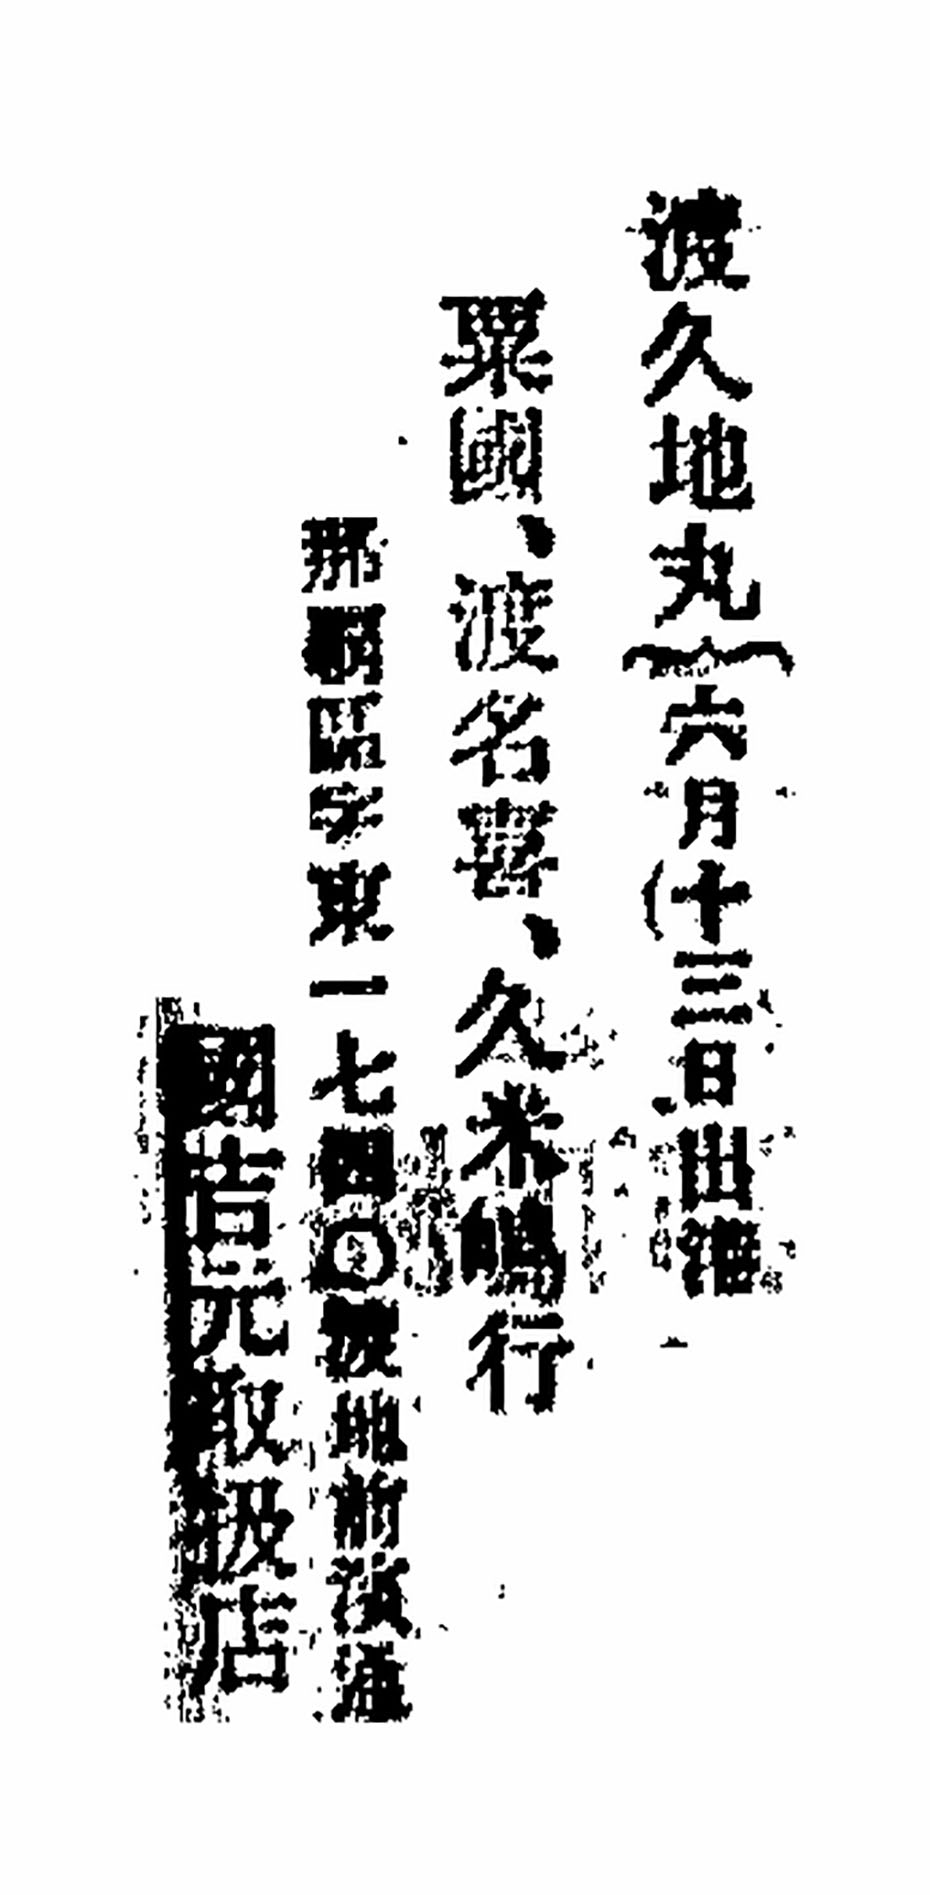 渡久地丸︷六月十三日出港
粟國、渡名喜、久米嶋行
那覇區字東一七四〇番地前濱通
國吉元取扱店